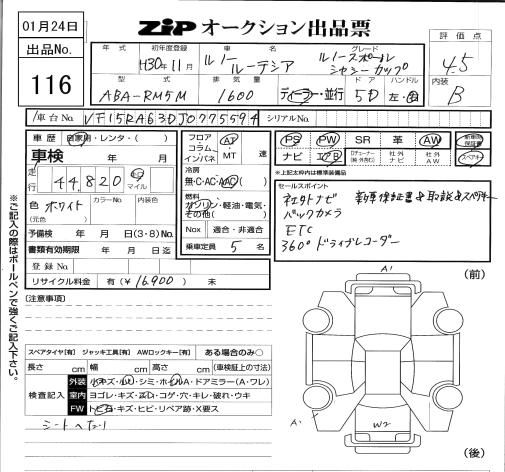 01月24日
ZIP オークション出品票
出品No.
116
評価点
4.5
内装
B
年式 初年度登録 車名 グレード
H30年11月 ルノー ルーテシア ルノースポール シャシーカップ
型式 排気量 ドア ハンドル
ABA-RM5M 1600 ディーラー・並行 5D 左・右
車台No. VF15RA63DJ0775594 シリアルNo.
車歴 自家用・レンタ・( )
車検 年 月
走行 44,820 km マイル
色 ホワイト カラーNo. 内装色
(元色)
予備検 年 月 日(3・8)No.
書類有効期限 年 月 日迄
登録No.
リサイクル料金 有(¥16,900) 未
フロア コラム インパネ AT MT 速
冷房 無・C・AC・AAC( )
燃料 ガソリン・軽油・電気・その他( )
Nox 適合・非適合
乗車定員 5 名
PS PW SR 革 AW 新車時保証書
ナビ エアB 社外ナビ 社外AW スペアキー
※上記太枠内は標準装備品
セールスポイント
社外ナビ 新車保証書&取説&スペアキー
バックカメラ
ETC
360°ドライブレコーダー
※ご記入の際はボールペンで強くご記入下さい。
(注意事項)
スペアタイヤ[有] ジャッキ工具[有] AWロックキー[有] ある場合のみ○
長さ cm 幅 cm 高さ cm (車検証上の寸法)
検査記入
外装 小キズ・小凹・シミ・ホイルA・ドアミラー(A・ワレ)
室内 ヨゴレ・キズ・スレ・コゲ・穴・キレ・破れ・ウキ
FW トビ石・キズ・ヒビ・リペア跡・X要ス
シートヘたり
A1
(前)
A1
W2
(後)